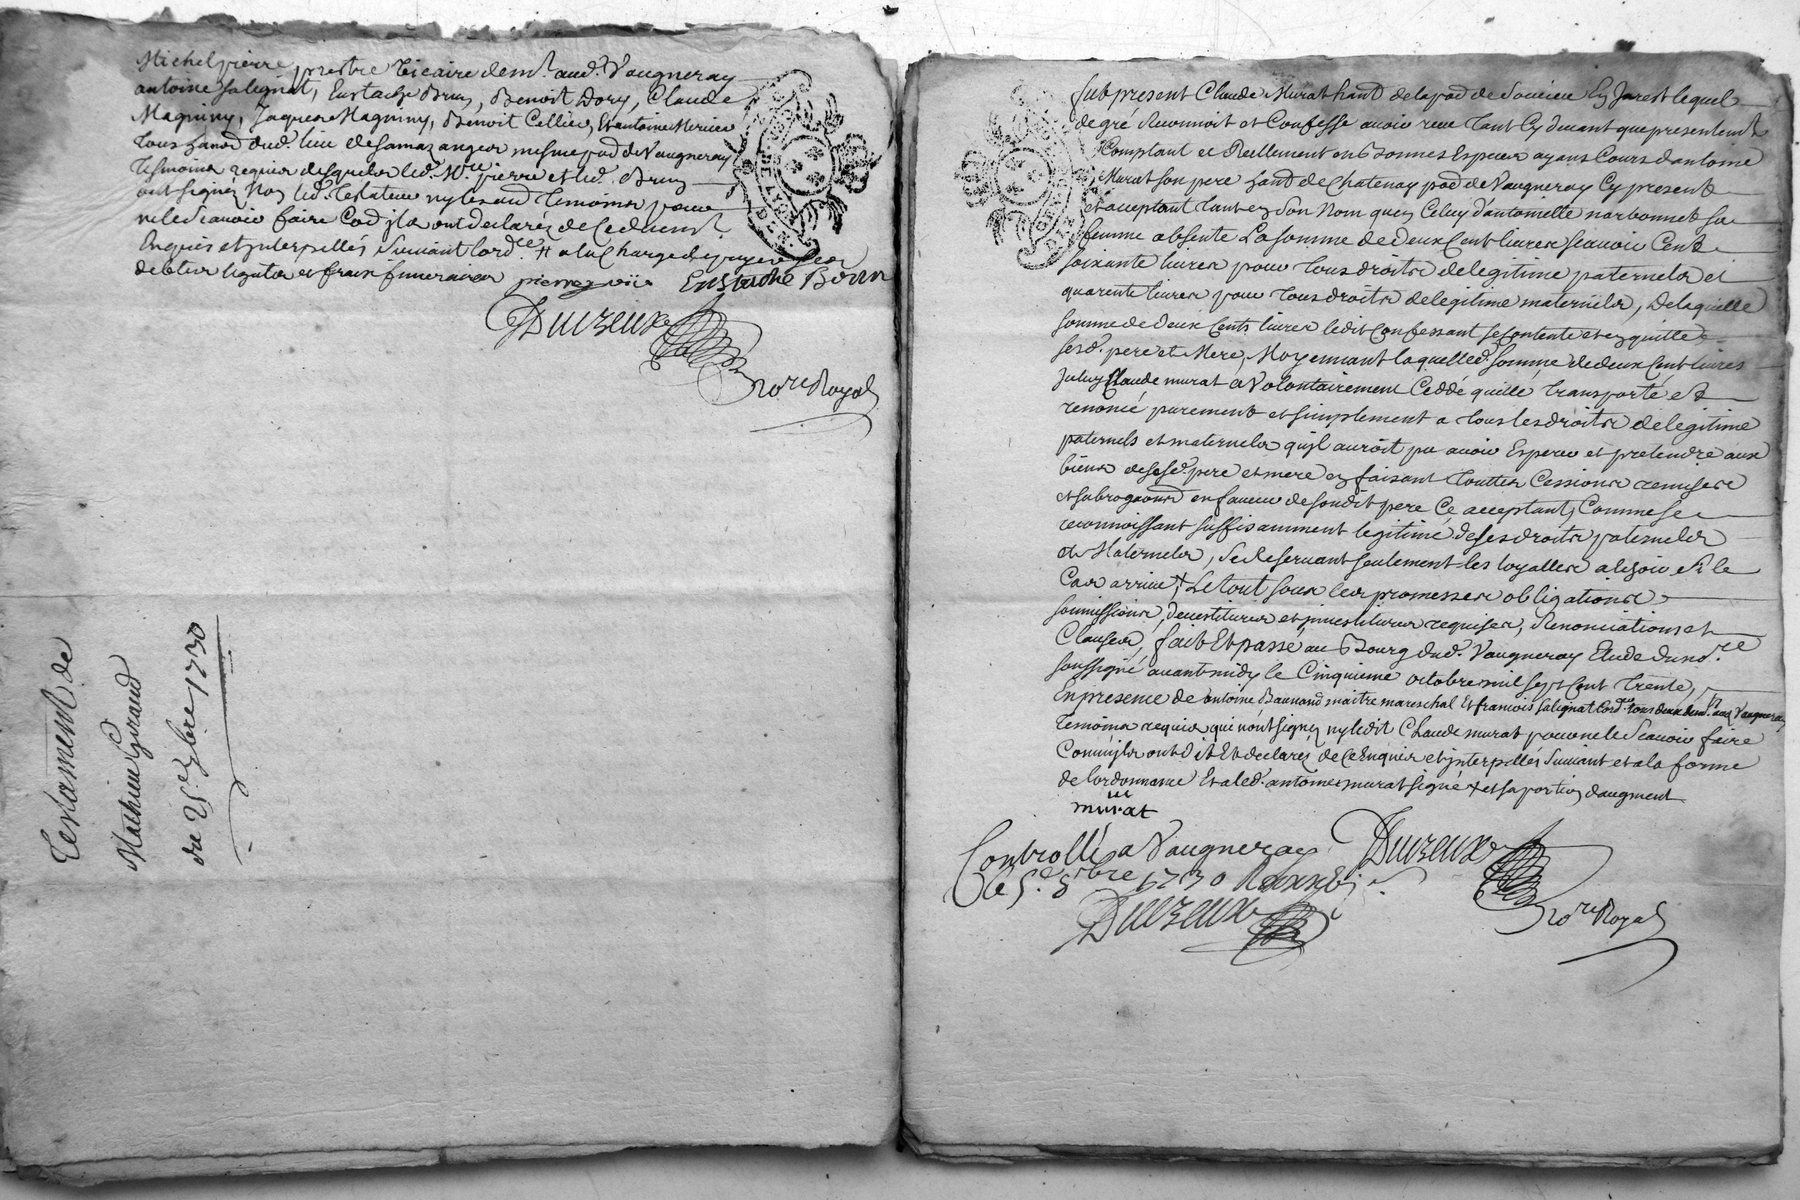 Michel pierre prestre vicaire dem.r aud. Vaugneray
antoine salignat, Eustache Brun, Benoit Dory, Claude
Magniny, Jaques Magniny, Benoit Cellier, Et antoine Mercier
tous hand dud. lieu de samazange mesme pad de Vaugneray
tesmoins requis desquels led. M.re pierre et led. Brun
ont signez Non led. testateur ny lesaud temoins pour
ne le scauoir faire Co͠e jls ont declarés de ce deüem.t
Enquis et jnterpellés suiuant lord.ce # a la Charge de payer
debtes legats et fraix funeraires pierre vic. Eustache Brun
Duizeux
no.re Royal
testament de
Mathieu Guraud
du 25.e 7bre 1730
fut present Claude Murat hand de la pad de Soucieu En Jarest lequel
de gré Reconnoit et Confesse auoir receu tant Cy deuant que presentem.t
Comptant et Reellement en Bonnes Especes ayans Cours dantoine
Murat son pere hand de Chatenay pad de Vaugneray Cy present
et acceptant tant en son Nom quen Celuy dantoinette narbonnet sa
femme absente La somme de deux Cent liures scauoir Cent
soixante liures pour tous droits de legitime paternels et
quarente liures pour tous droits de legitime maternels, de laquelle
somme de deux Cents liures ledit Confessant se contente et en quitte
sesd. pere et Mere, Moyennant laquelled. somme de deux Cent liures
jceluy Claude murat a Volontairement Ceddé quitté transporté et
renoncé purement et simplement a tous les droits de legitime
paternels et maternels qujl auroit pu auoir Esperer et pretendre aux
biens de sesd. pere et mere en faisant touttes Cessions remises
et subrogaons en faueur de sondit pere Ce acceptant, Comme se
reconnoissant suffisamment legitimé de ses droits paternels
et Maternels, se Reseruant seulement les loyalles aleschoir si le
Cas arriue + Le tout sous leurs promesses obligations
soumissions, deuestitures et jnuestitures requises, Renonciations et
Clauses, fait Et passé au Bourg dud. Vaugneray Etude du no.re
soussigné auant midy le Cinquieme octobre mil sept Cent trente,
En presence de antoine Bannand maitre mareschal Et francois salignat Cord.er tous deux aud. Vaugneray
temoins requis qui n'ont signez ny ledit Claude murat pour ne le scauoir faire
Comm jls ont dit Et declarés de ce Enquis et jnterpellés suiuant et a la forme
de lordonnance Et a led. antoine murat signé + et sa portion daugment
murat
Controllé a Vaugneray Duizeux
le 5.e 8bre 1730
Duizeux no.re Royal